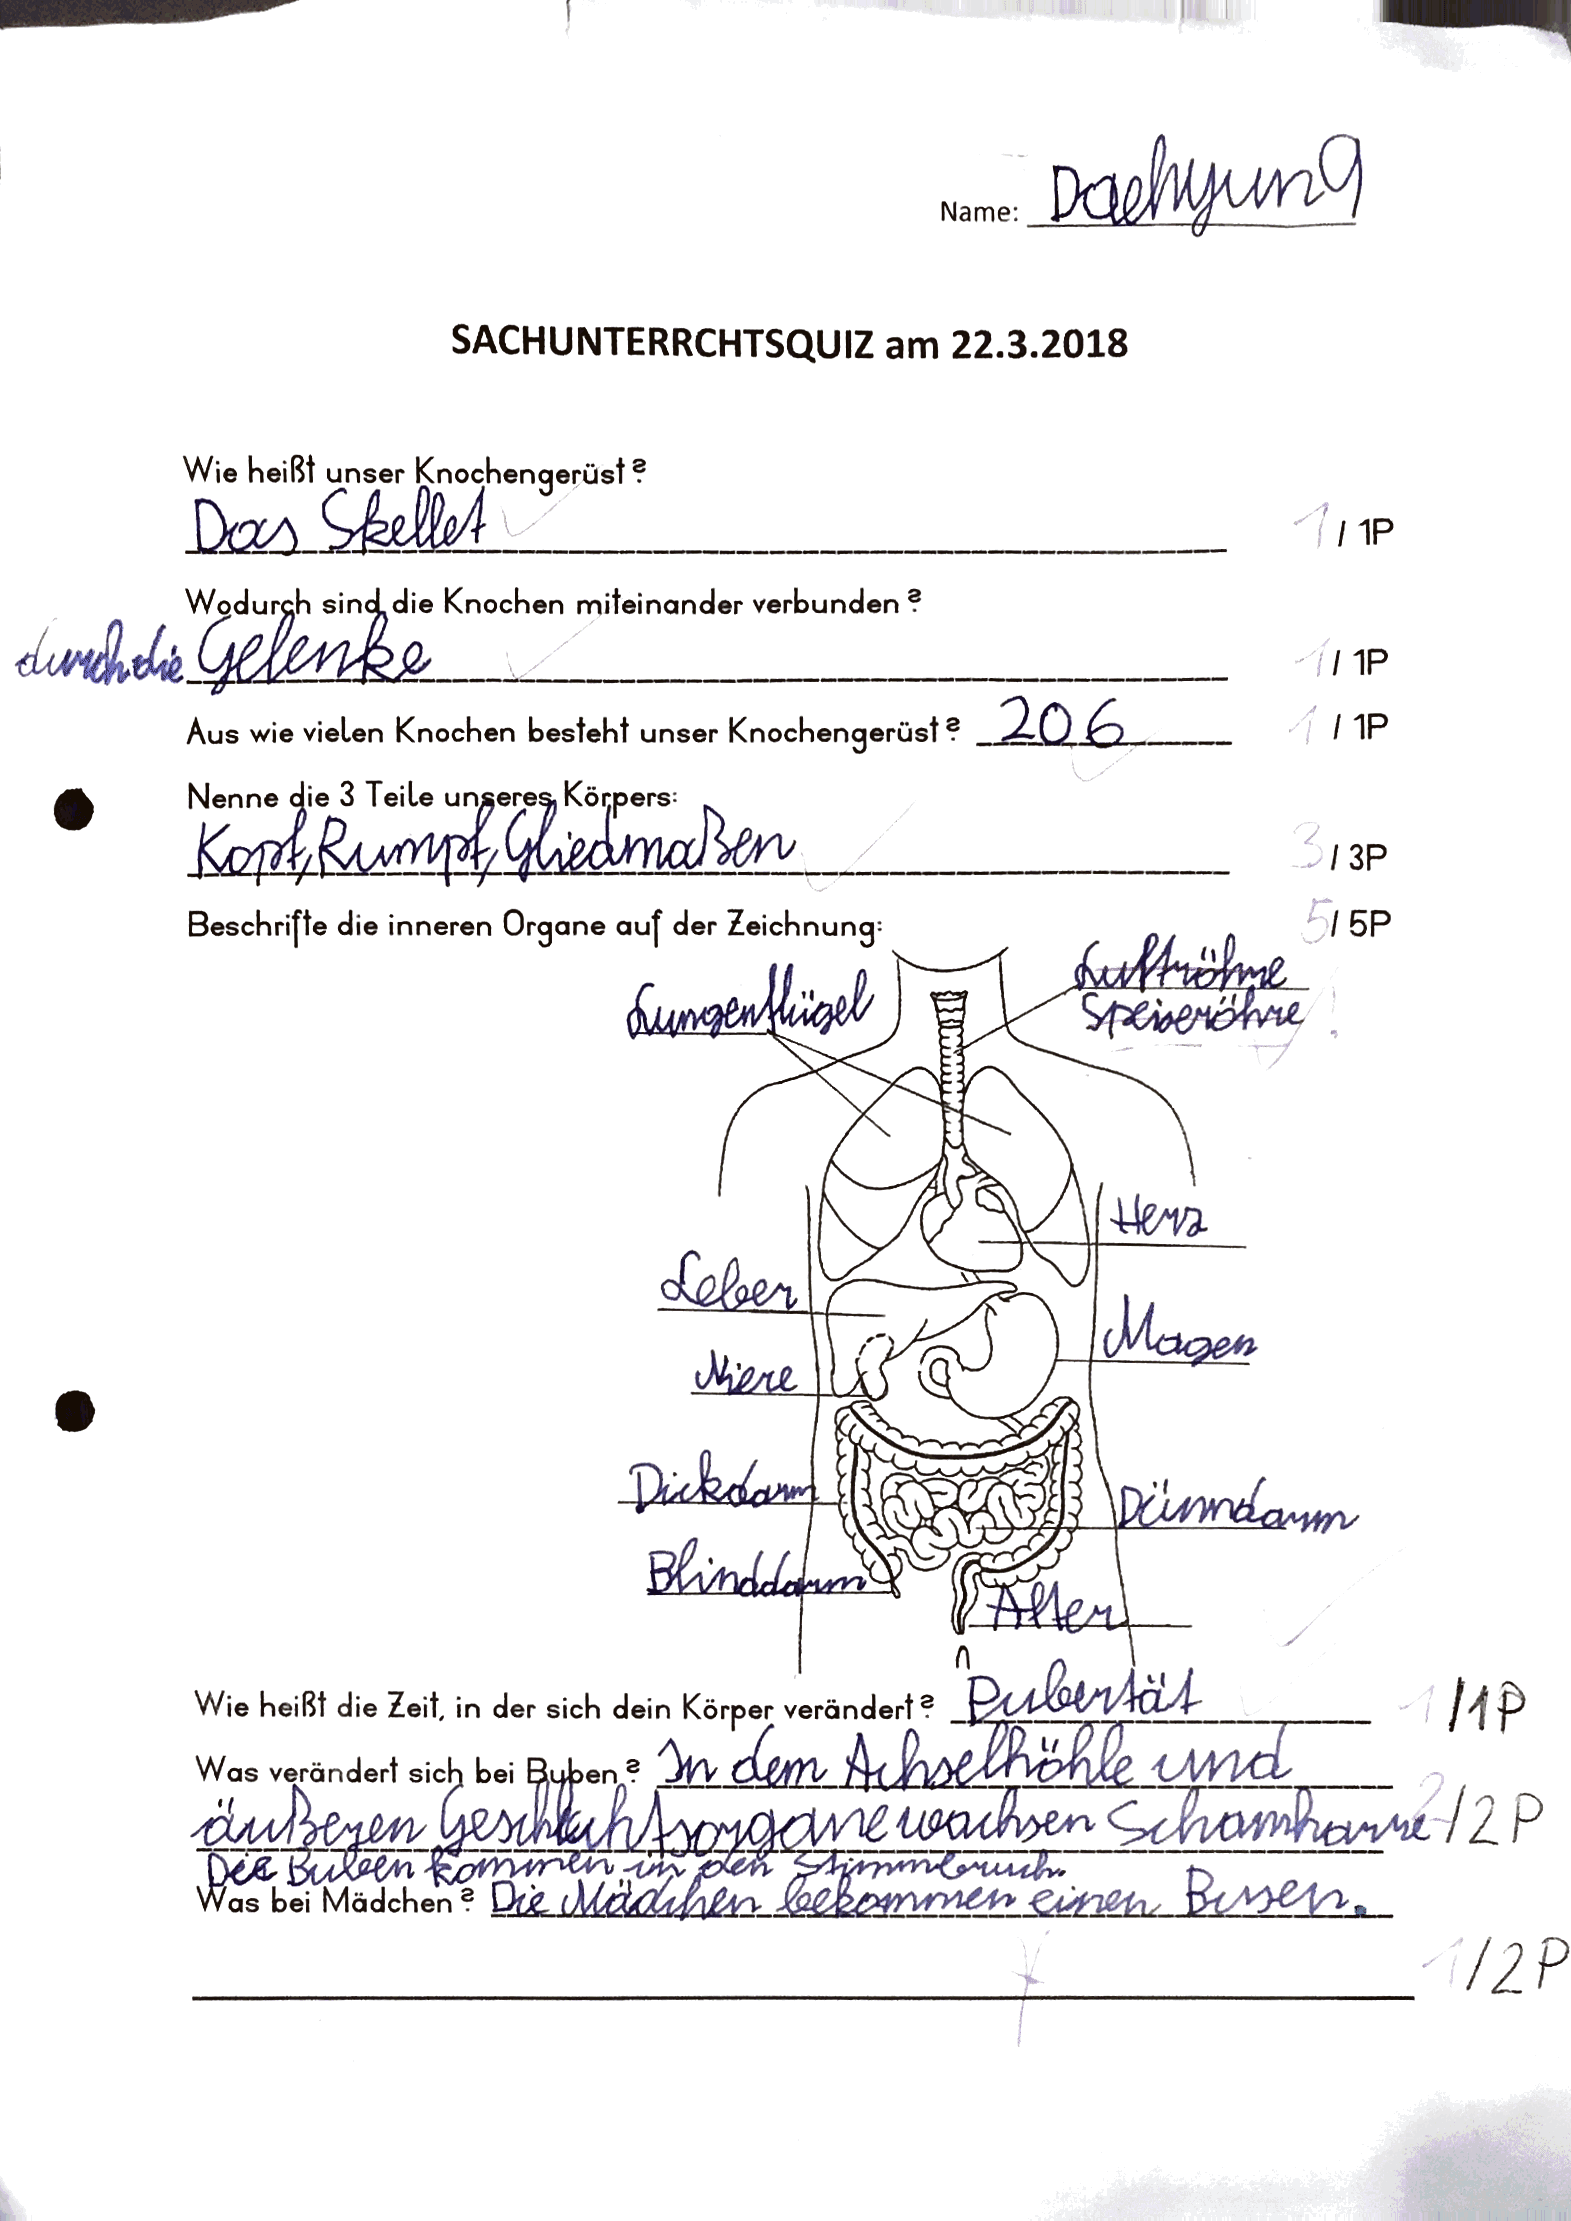 Name: Daehyung
SACHUNTERRCHTSQUIZ am 22.3.2018
Wie heißt unser Knochengerüst?
Das Skellet
1 / 1P
Wodurch sind die Knochen miteinander verbunden?
durch die Gelenke
1 / 1P
Aus wie vielen Knochen besteht unser Knochengerüst? 206
1 / 1P
Nenne die 3 Teile unseres Körpers:
Kopf, Rumpf, Gliedmaßen
3 / 3P
Beschrifte die inneren Organe auf der Zeichnung:
5 / 5P
Lungenflügel
Luftröhre
Speiseröhre !
Herz
Leber
Magen
Niere
Dickdarm
Dünndarm
Blinddarm
After
Wie heißt die Zeit, in der sich dein Körper verändert? Pubertät
1 /1P
Was verändert sich bei Buben? In dem Achselhöhle und
äußeren Geschlechtsorgane wachsen Schamharre
2 /2P
Die Buben kommen in den Stimmbruch.
Was bei Mädchen? Die Mädchen bekommen einen Busen.
1 /2P